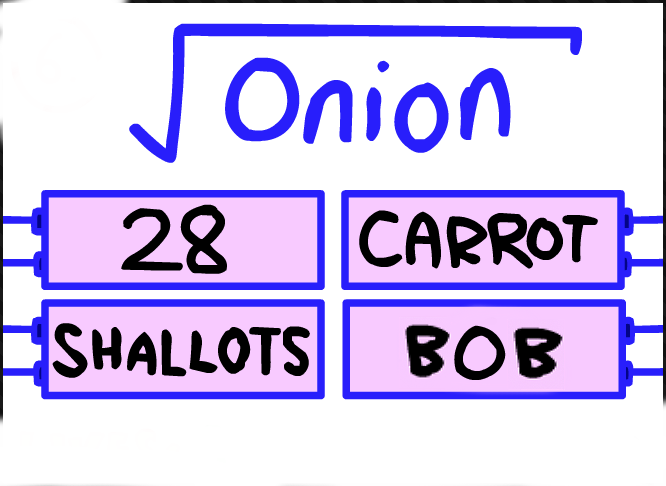 √Onion
28
CARROT
SHALLOTS
BOB